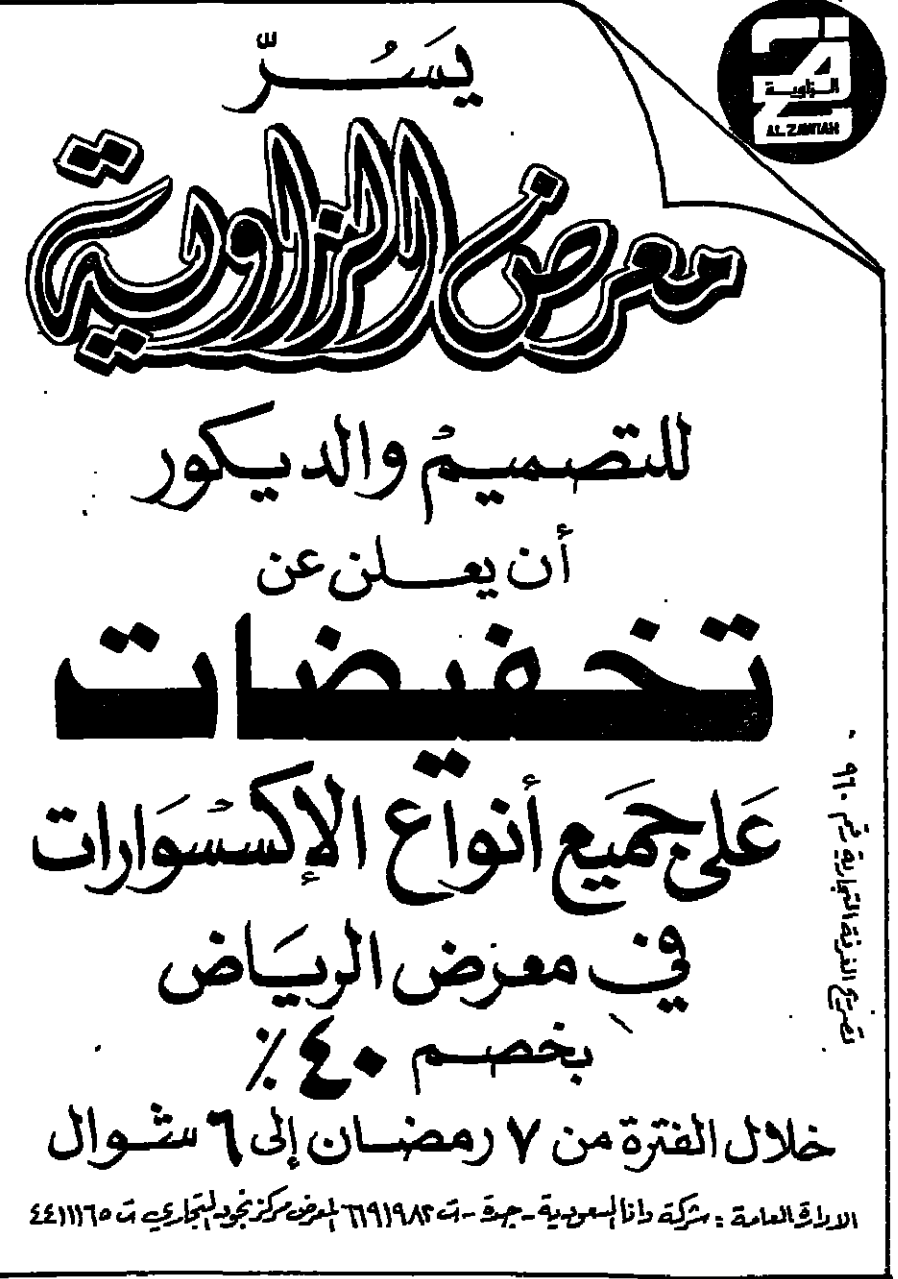 الزاوية
AL ZAWIAH
يَسُرّ
معرض الزاوية
للتصميم والديكور
أن يعلن عن
تخفيضات
عَلى جَميع أنواع الإكسسوارات
في معرض الريَاض
بخصم ٤٠٪
خلال الفترة من ٧ رمضان إلى ٦ شوال
الادارة العامة : شركة دانا السعودية - جدة - ت ٦٦٩١٩٨٢ المعرض مركز نجود التجاري ت ٤٤١١١٦٥
تصريح الغرفة التجارية رقم ٩٦٠